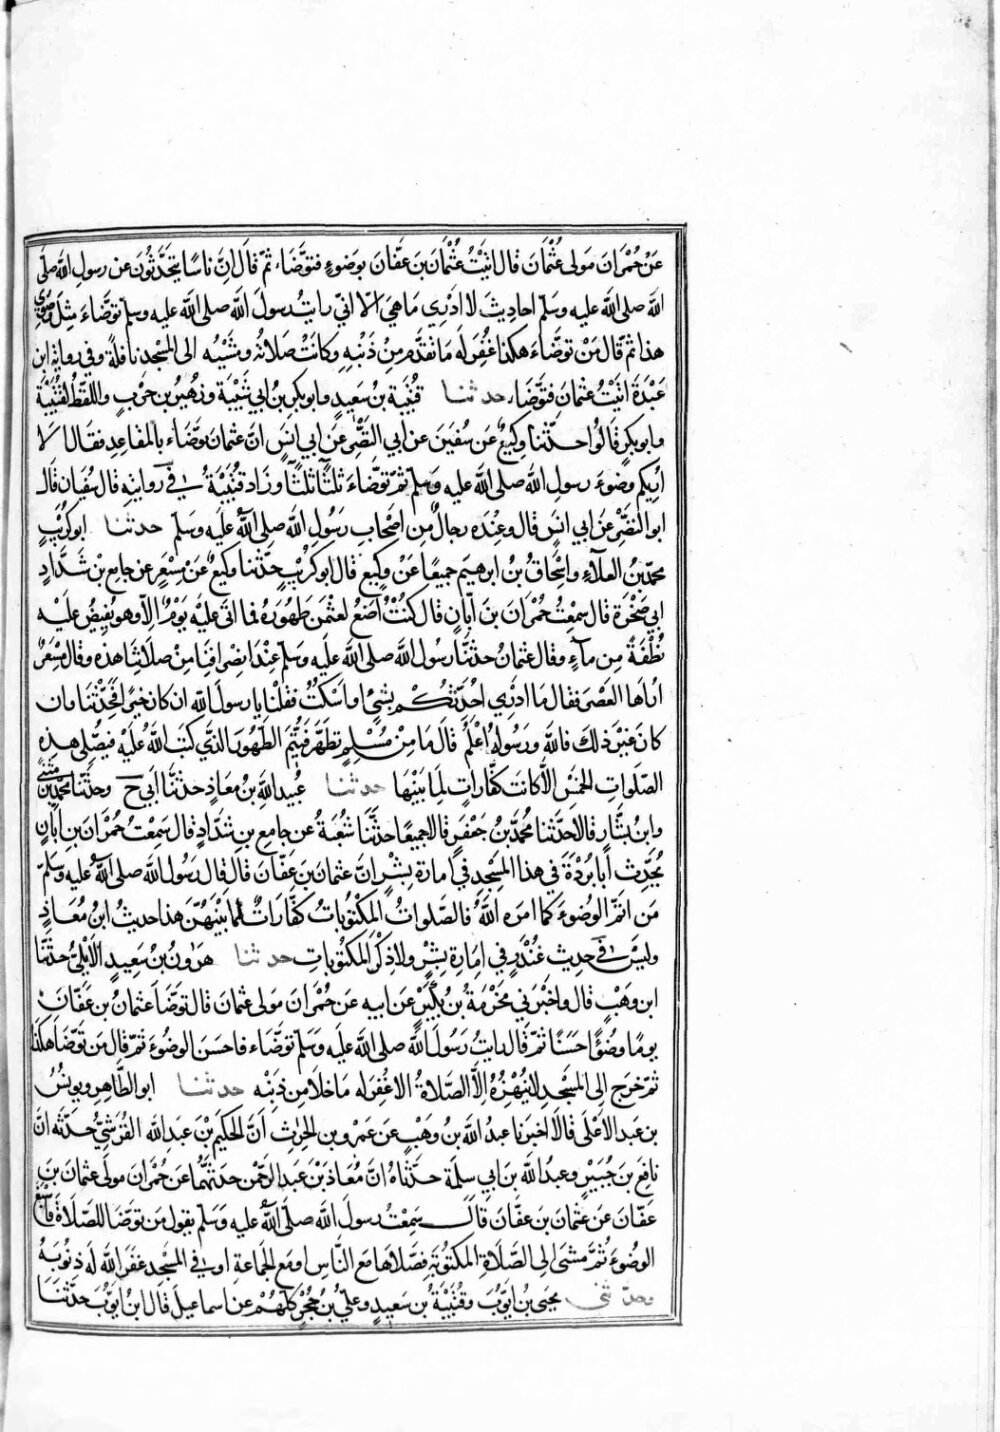 عَنْ حُمْرَانَ مَولى عُثْمَانَ قال اتَيْتُ عُثْمَانَ بن عَفَّانَ بِوَضوءٍ فتَوَضَّاءَ ثمّ قَالَ اِنَّ نَاسًا يَتَحَدَّثُونَ عن رسولِ الله صلّى
الله صلى الله عليه وسلّم احادِيثَ لا ادْرِي مَا هِيَ اِلّا انّي رايتُ رسولَ الله صلى الله عليه وسلم توَضَّاءَ مِثلَ وضوءي
هذا ثمّ قال مَنْ توَضَّاءَ هكذا غُفِرَ له مَا تَقَدَّمَ مِنْ ذَنْبِهِ وكانَتْ صَلاتُهُ ومَشْيُه الى المَسْجِد نافِلَةً وفي رواية ابن
عَبْدَةَ اتَيْتُ عثمانَ فتَوَضَّاءَ حدثنا قُتَيْبَة بنُ سَعيدٍ وابوبكرِ بنُ ابي شَيْبَة وزهيرُ بن حَرْبٍ واللفظُ لقُتَيْبَة
وابوبكرٍ قالُوا حدّثنا وكيعٌ عَن سُفيَن عن ابي النَضْرِ عَن ابي انَسٍ انّ عثمانَ توَضَّاء بالمقاعِدِ فقال الا
اُرِيكُم وضوءَ رسولِ الله صلى الله عليه وَسَلّم ثمّ توَضَّاءَ ثلثًا ثلثًا وزاد قُتَيْبَةُ في روايتِهِ قال سُفيَان قال
ابو النضْرِ عَن ابي انَسٍ قال وعِنْدَه رجالٌ من اصحابِ رسُولِ الله صلى الله عليه وَسلّم حدثنا ابو كُرَيْبٍ
محمّد بنُ العلآءِ واسْحاقُ بنُ ابرهيم جميعًا عَنْ وكيعٍ قال ابوكُرَيْبٍ حدّثنا وكيعٌ عَنْ مِسْعَرٍ عن جامعِ بن شَدَّادٍ
ابي صَخْرَة قال سمِعْتُ حُمْرَانَ بنَ ابَانٍ قال كنْتُ اَضَعُ لعثْمنَ طَهُورَهُ فما اتى عَليْه يَوْمٌ الّا وهو يُفِيضُ عَلَيْه
نُطْفَةً مِن مآءٍ وقال عثمانُ حدثنَا رسُولُ الله صلى الله عليه وَسلّم عِنْدَ انصِرَافِنا مِنْ صَلاتنا هذه وقال مِسْعَرٌ
اُراهَا العَصْرَ فقال ما ادْرِي اُحَدِّثكُم بِشَيْءٍ او اسْكُتُ فقلنا يا رسولَ الله ان كان خيرًا فَحَدِّثنا وان
كان غيرَ ذلك فالله ورَسُولُه اعْلَمُ قَالَ مَا مِنْ مُسْلِمٍ يَتَطَهَّرُ فَيُتِمُّ الطَّهُورَ الذي كتَبَ الله عَلَيْه فيُصَلّي هذه
الصّلواتِ الخمْسِ الّا كانت كفّاراتٍ لِمَا بَيْنَهَا حدثنا عُبيدالله بن معَاذٍ حدثنَا اَبي ح وحدّثنا محمّد بن مثنّى
وابنُ بَشَّارٍ قالا حدّثنا محمّدُ بنُ جَعْفَرٍ قالا جميعًا حدّثنا شعْبَةُ عن جامعِ بن شدّادٍ قال سَمِعْتُ حُمْرَانَ بن اَبَانٍ
يُحَدِّث اَبا بُرْدَةَ في هذا المسْجدِ في امارةِ بِشْرٍ انَّ عثمانَ بن عَفّان قال قال رَسُولُ الله صلى الله عليه وسَلّم
مَن اتمّ الوضوءَ كما امَره اللهُ فالصّلواتُ المكتُوباتُ كفّاراتٌ لما بَيْنَهُنّ هذا حديثُ ابنُ مُعَاذٍ
وليْسَ في حديثِ غُنْدَرٍ في امارة بِشْرٍ ولا ذِكْر المكتوباتِ حدثنا هَرون بنُ سَعِيدٍ الايليُّ حدّثنا
ابن وَهْبٍ قال واخبَرَني مَخْرَمَةُ بنُ بُكَيرٍ عَن ابيهِ عَن حُمْرَانَ مَولى عثمانَ قال توَضَّأ عثمانُ بن عَفّانَ
يومًا وضوًا حَسَنًا ثمّ قَال رايتُ رَسُولَ اللهِ صلى الله عليه وَسلّم توَضَّاء فاحسَن الوضوءَ ثمّ قال مَن توَضَّأ هكذا
ثمّ خرج الى المسْجد لا يَنْهَزُهُ اِلّا الصّلاةُ الا غُفِرَ له مَا خلا من ذنبه حدثنا ابو الطَّاهِرِ ويونسُ
بن عبد الاعْلَى قالا اخبرنا عبدُ الله بنُ وَهْبٍ عَن عَمْرو بن الحرِثِ اَنّ الحكيمَ بْنَ عبدِ الله القُرَشيَّ حدّثه انّ
نافِعَ بنَ جُبَيْرٍ وعبدُ الله بن ابي سلَمة حدّثاهُ انَّ مُعَاذَ بْنَ عبد الرَّحمن حدّثهُمَا عَن حُمْرانَ مولَى عثمانَ بن
عَفّانَ عَن عثمانَ بن عَفّان قَالَ سَمِعْتُ رسولَ الله صلّى الله عليه وَسَلّم يقول مَن توَضَّأ للصّلاة فاسْبَغَ
الوضُوءَ ثُمّ مشَى الى الصَّلاة المكتوبَةِ فصَلّاها مَعَ النَّاسِ اومَع الجماعةِ او في المسْجد غَفَرَ الله لَه ذنُوبَهُ
وحدّثني يحيَى بن ايّوبَ وقُتَيْبَةُ بن سَعيدٍ وعَليّ بنُ حُجْرٍ كلّهُمْ عن اسماعيلَ قال ابن ايّوب حَدّثنا